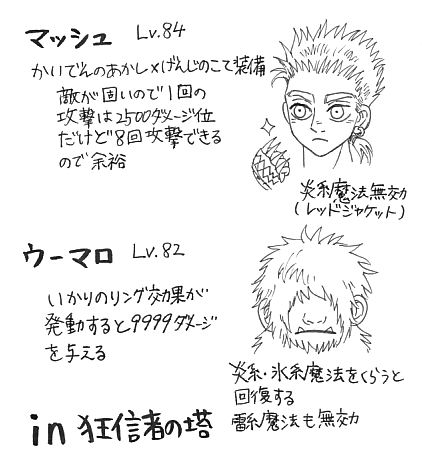 マッシュ Lv.84
かいでんのあかし×げんじのこて装備
敵が固いので1回の
攻撃は2500ダメージ位
だけど8回攻撃できる
ので余裕
炎系魔法無効
(レッドジャケット)
ウーマロ Lv.82
いかりのリング効果が
発動すると9999ダメージ
を与える
炎系・氷系魔法をくらうと
回復する
雷系魔法も無効
in 狂信者の塔